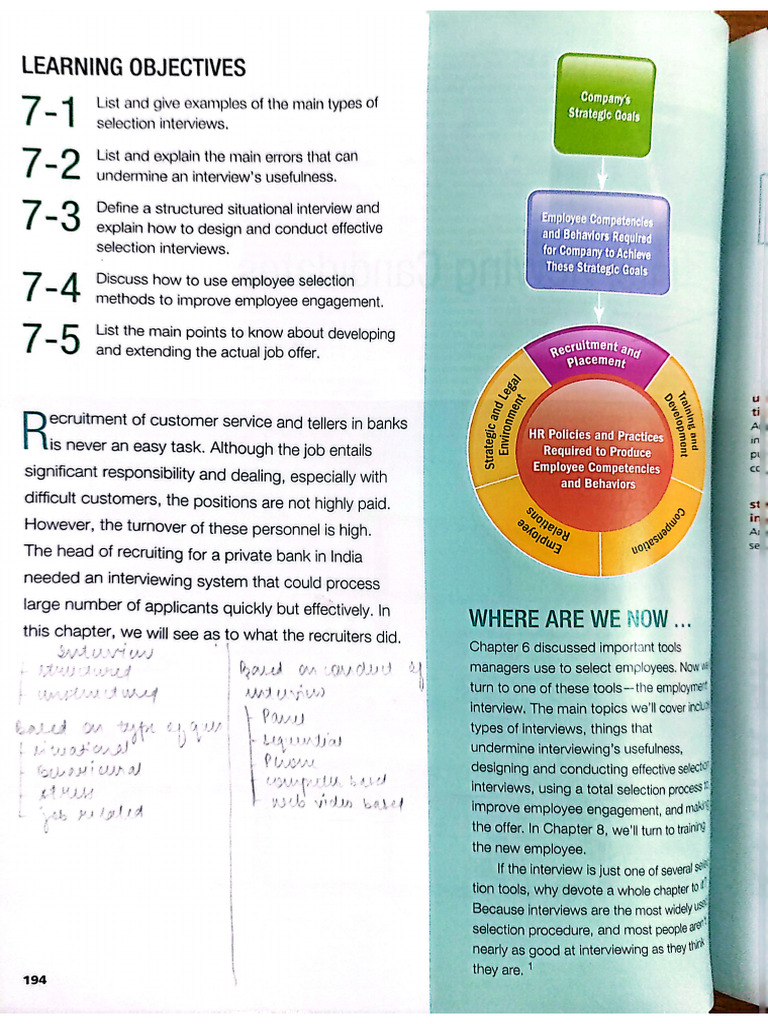 LEARNING OBJECTIVES
7-1 List and give examples of the main types of
selection interviews.
7-2 List and explain the main errors that can
undermine an interview's usefulness.
7-3 Define a structured situational interview and
explain how to design and conduct effective
selection interviews.
7-4 Discuss how to use employee selection
methods to improve employee engagement.
7-5 List the main points to know about developing
and extending the actual job offer.
Recruitment of customer service and tellers in banks
is never an easy task. Although the job entails
significant responsibility and dealing, especially with
difficult customers, the positions are not highly paid.
However, the turnover of these personnel is high.
The head of recruiting for a private bank in India
needed an interviewing system that could process
large number of applicants quickly but effectively. In
this chapter, we will see as to what the recruiters did.
Interview
structured
unstructured
Based on type of ques
situational
Behavioural
stress
job related
Based on conduct of
interview
Panel
sequential
Phone
computer based
web video based
194
Company's
Strategic Goals
Employee Competencies
and Behaviors Required
for Company to Achieve
These Strategic Goals
Recruitment and
Placement
Training and
Development
Compensation
Employee
Relations
Strategic and Legal
Environment
HR Policies and Practices
Required to Produce
Employee Competencies
and Behaviors
WHERE ARE WE NOW ...
Chapter 6 discussed important tools
managers use to select employees. Now we
turn to one of these tools—the employment
interview. The main topics we'll cover include
types of interviews, things that
undermine interviewing's usefulness,
designing and conducting effective selection
interviews, using a total selection process to
improve employee engagement, and making
the offer. In Chapter 8, we'll turn to training
the new employee.
If the interview is just one of several selec-
tion tools, why devote a whole chapter to it?
Because interviews are the most widely used
selection procedure, and most people aren't
nearly as good at interviewing as they think
they are. 1